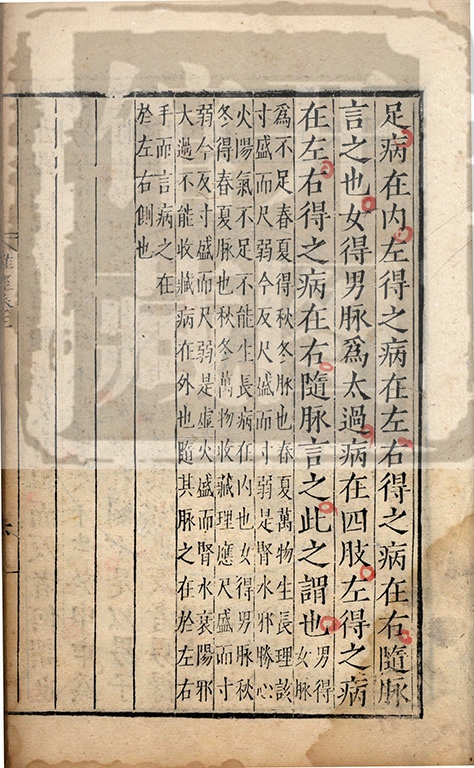 足病在內左得之病在左右得之病在右隨脉
言之也女得男脉爲太過病在四肢左得之病
在左右得之病在右隨脉言之此之謂也男得
女脉
爲不足春夏得秋冬脉也春夏萬物生長理該
寸盛而尺弱今反尺盛而寸弱是腎水邪勝心
火陽氣不足不能生長病在內也女得男脉秋
冬得春夏脉也秋冬萬物收藏理應尺盛而寸
弱今反寸盛而尺弱是虛火盛而腎水衰陽邪
大過不能收藏病在外也隨其脉之在於左右
手而言病之在
於左右側也